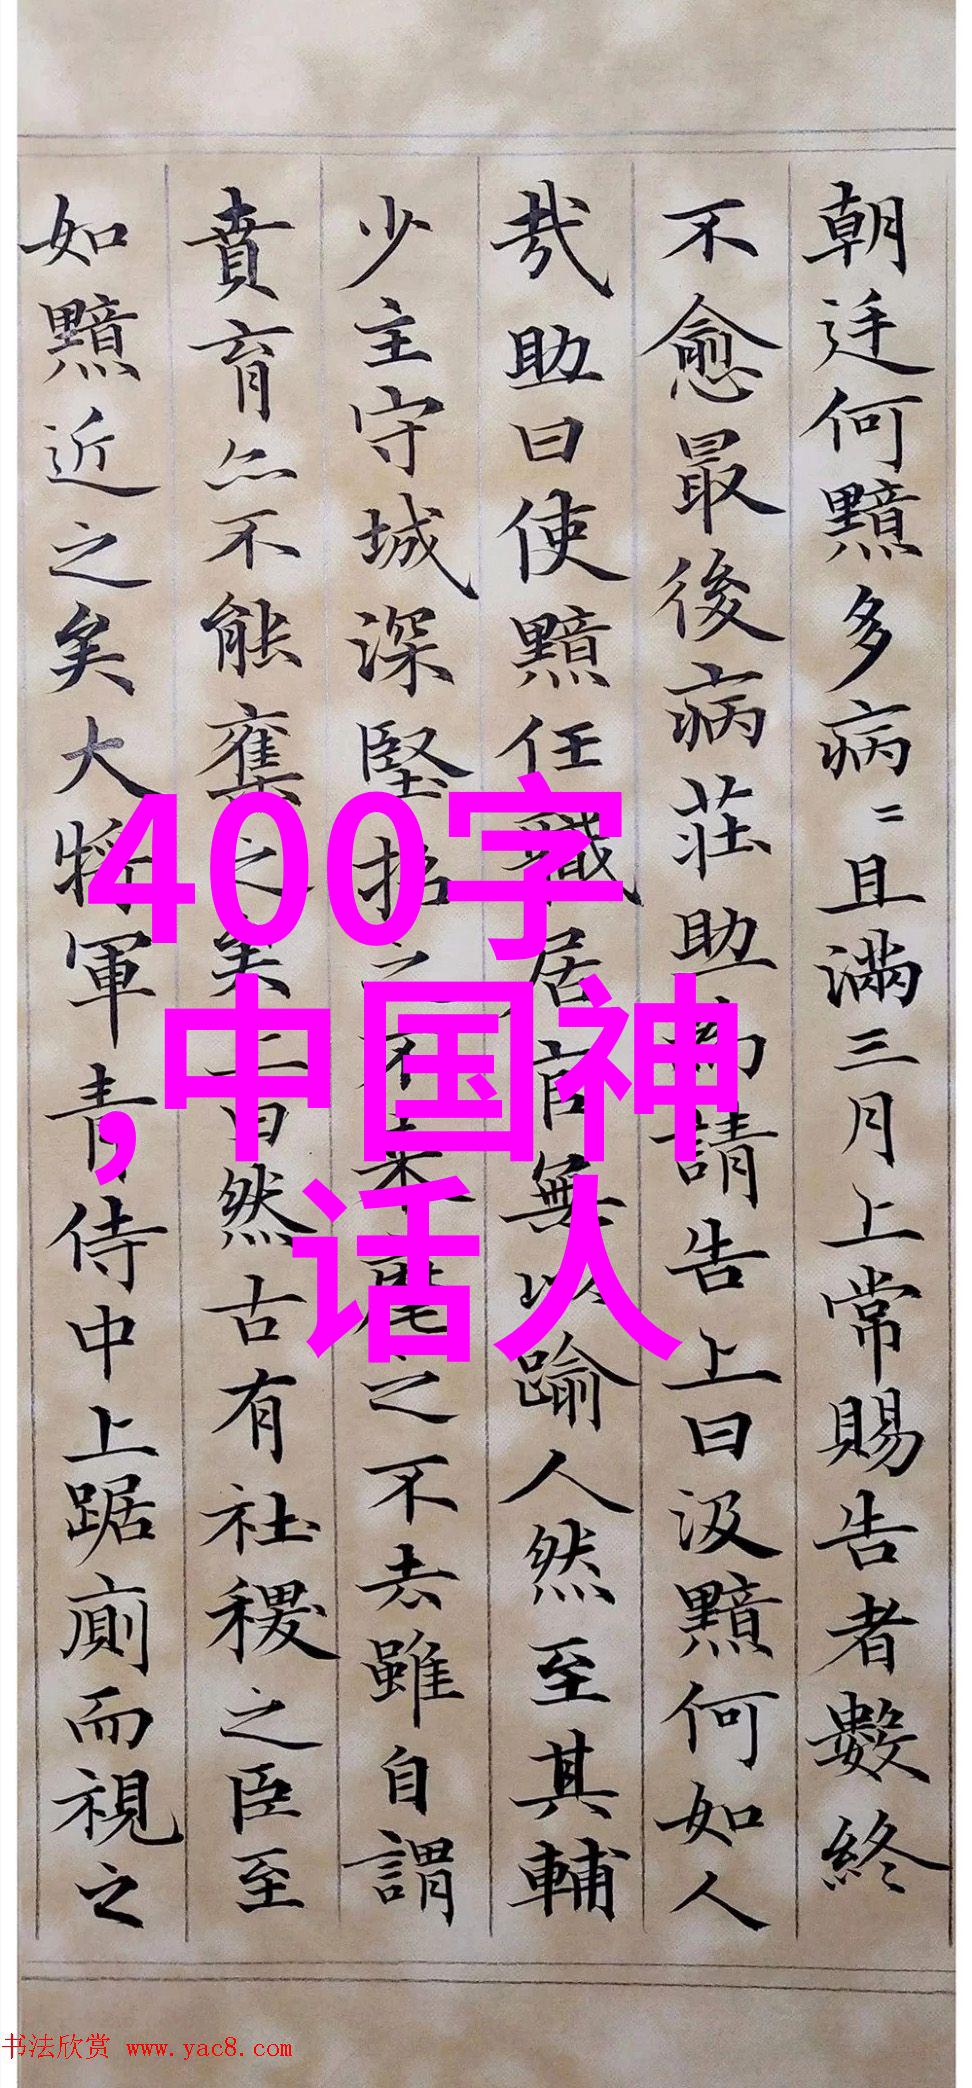 朝廷何黯多病〻且滿三月上常賜告者數終
不愈最後病莊助為請告上曰汲黯何如人
哉助曰使黯任職居官無以踰人然至其輔
少主守城深堅招之不来麾之不去雖自謂
賁育亦不能奪之矣上曰然古有社稷之臣至
如黯近之矣大将軍青侍中上踞廁而視之
400字
,中国神
话人
书法欣赏 www.yac8.com